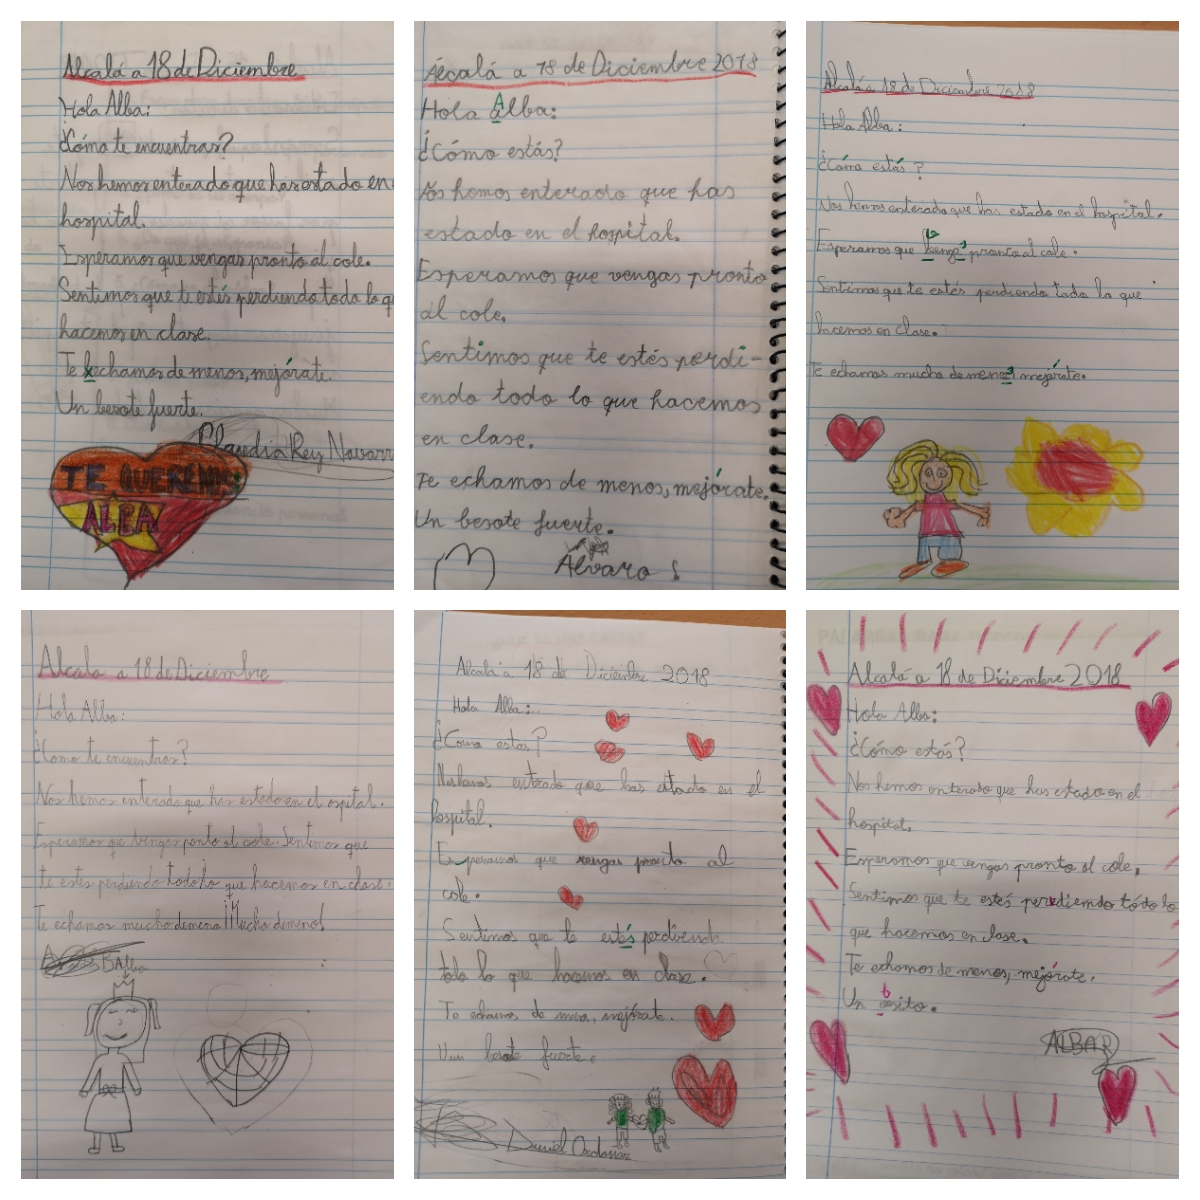 Alcalá a 18 de Diciembre
Hola Alba:
¿Cómo te encuentras?
Nos hemos enterado que has estado en
hospital.
Esperamos que vengas pronto al cole.
Sentimos que te estés perdiendo todo lo q
hacemos en clase.
Te echamos de menos, mejórate.
Un besote fuerte.
Claudia Rey Navarr
TE QUEREMOS
ALBA
Álcalá a 18 de Diciembre 2018
Hola Alba:
¿Cómo estás?
Nos hemos enterado que has
estado en el hospital.
Esperamos que vengas pronto
al cole.
Sentimos que te estés perdi-
endo todo lo que hacemos
en clase.
Te echamos de menos, mejórate.
Un besote fuerte.
Álvaro S
Alcalá a 18 de Diciembre 2018
Hola Alba:
¿Cómo estás?
Nos hemos enterado que has estado en el hospital.
Esperamos que bengas pronto al cole.
Sentimos que te estés perdiendo todo lo que
hacemos en clase.
Te echamos mucho de menos mejórate.
Alcala a 18 de Diciembre
Hola Alba:
¿Como te encuentras?
Nos hemos enterado que has estado en el ospital.
Esperamos que vengas ponto al cole. Sentimos que
te estes perdiendo todo lo que hacemos en clase.
Te echamos mucho demeno ¡Mucho demeno!
Alba
Alcalá a 18 de Diciembre 2018
Hola Alba:
¿Como estas?
entrado que has estado en el
hospital.
Esperamos que vengas pronto al
cole.
Sentimos que te estés perdiendo
todo lo que hacemos en clase.
Te echamos de menos, mejórate.
Un besote fuerte.
Daniel
Alcalá a 18 de Diciembre 2018
Hola Alba:
¿Cómo estás?
Nos hemos enterado que has estado en el
hospital.
Esperamos que vengas pronto al cole,
Sentimos que te estés perdiendo tódo lo
que hacemos en clase.
Te echamos de menos, mejórate.
Un besito.
ALBA R